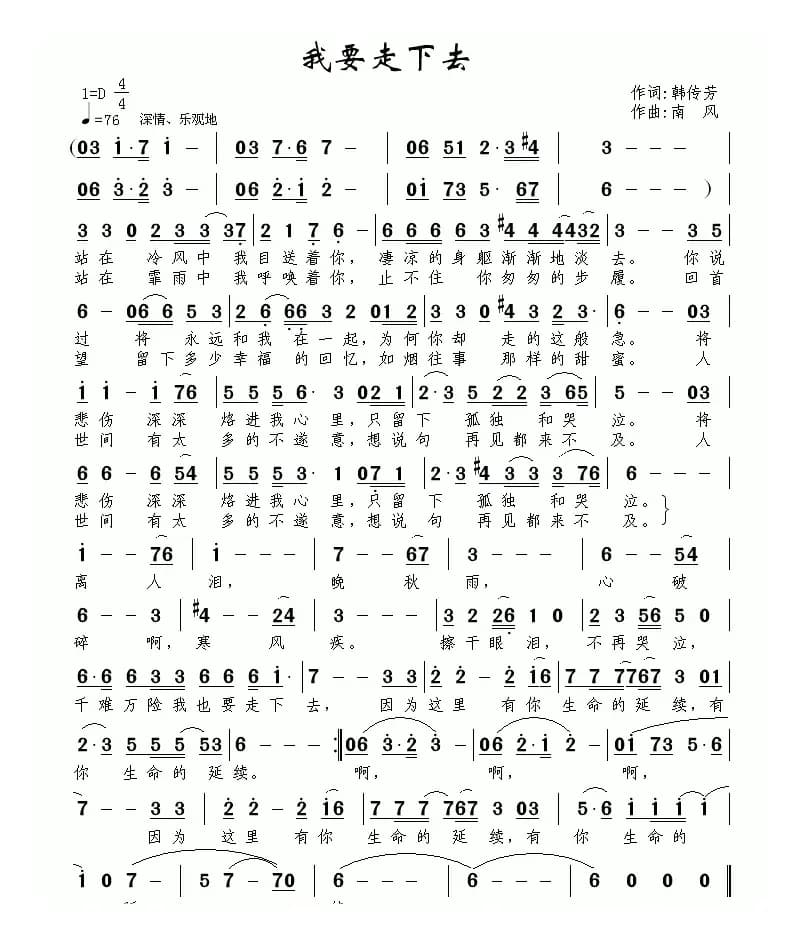 我要走下去
1=D 4/4
作词:韩传芳
♩=76 深情、乐观地
作曲:南 风
(03 i·7 i - | 03 7·6 7 - | 06 51 2·3 #4 | 3 - - - |
06 3·2 3 - | 06 2·i 2 - | 0i 73 5· 67 | 6 - - - )
3 3 0 2 3 3 37 | 2 1 7 6 - | 6 6 6 6 3 #4 4 4432 | 3 - - 3 5 |
站在 冷风中 我目送着你, 凄凉的身躯渐渐地淡 去。 你说
站在 霏雨中 我呼唤着你, 止不住 你匆匆的步 履。 回首
6 - 06 6 5 3 | 2 6 66 3 2 01 2 | 3 3 0 #4 3 2 3· | 6 - - 03 |
过 将 永远和我 在一起,为何你却 走的这般 急。 将
望 留下多少幸福 的回忆,如烟往事 那样的甜 蜜。 人
i i - i 76 | 5 5 5 6· 3 02 1 | 2·3 5 2 2 3 65 | 5 - - 03 |
悲伤 深深 烙进我心 里,只留下 孤独 和哭 泣。 将
世间 有太 多的不遂 意,想说句 再见都来不 及。 人
6 6 - 6 54 | 5 5 5 3· 1 07 1 | 2·3 #4 3 3 3 76 | 6 - - - |
悲伤 深深 烙进我心 里,只留 下 孤独 和哭 泣。
世间 有太 多的不遂 意,想说 句 再见都来不 及。
i - - 76 | i - - - | 7 - - 67 | 3 - - - | 6 - - 54 |
离 人 泪, 晚 秋 雨, 心 破
6 - - 3 | #4 - - 24 | 3 - - - | 3 2 26 1 0 | 2 3 56 5 0 |
碎 啊, 寒 风 疾。 擦干眼 泪, 不再哭 泣,
6·6 6 6 3 6 6 6 i· | 7 - - 3 3 | 2 2 - 2 i6 | 7 7 7 7767 3 01 |
千难万险我也要走下 去, 因为这里 有你 生命的延 续,有
2·3 5 5 5 53 | 6 - - - :‖ 06 3·2 3 - | 06 2·i 2 - | 0i 73 5·6 |
你 生命的 延续。 啊, 啊, 啊,
7 - - 3 3 | 2 2 - 2 i6 | 7 7 7 767 3 03 | 5·6 i i i i |
因为 这里 有你 生命的 延 续,有你 生命的
i 0 7 - | 5 7 - 70 | 6 - - - | 6 - - - | 6 0 0 0 ‖